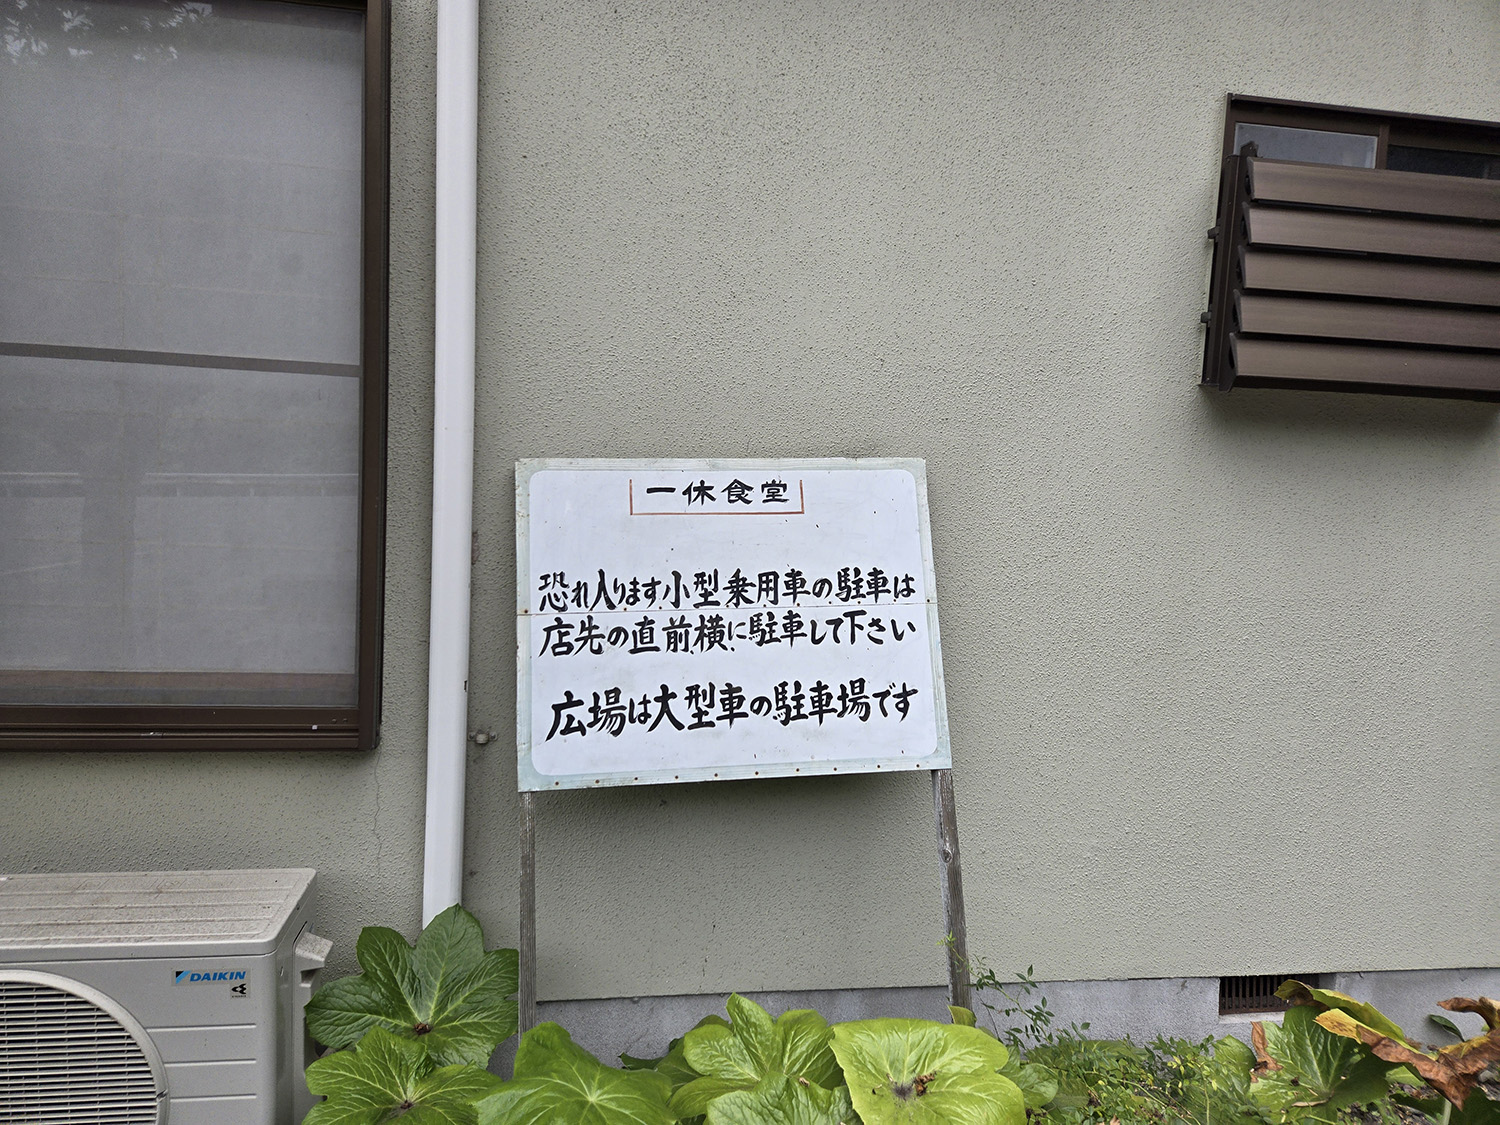 一休食堂
恐れ入ります小型乗用車の駐車は
店先の直前横に駐車して下さい
広場は大型車の駐車場です
DAIKIN